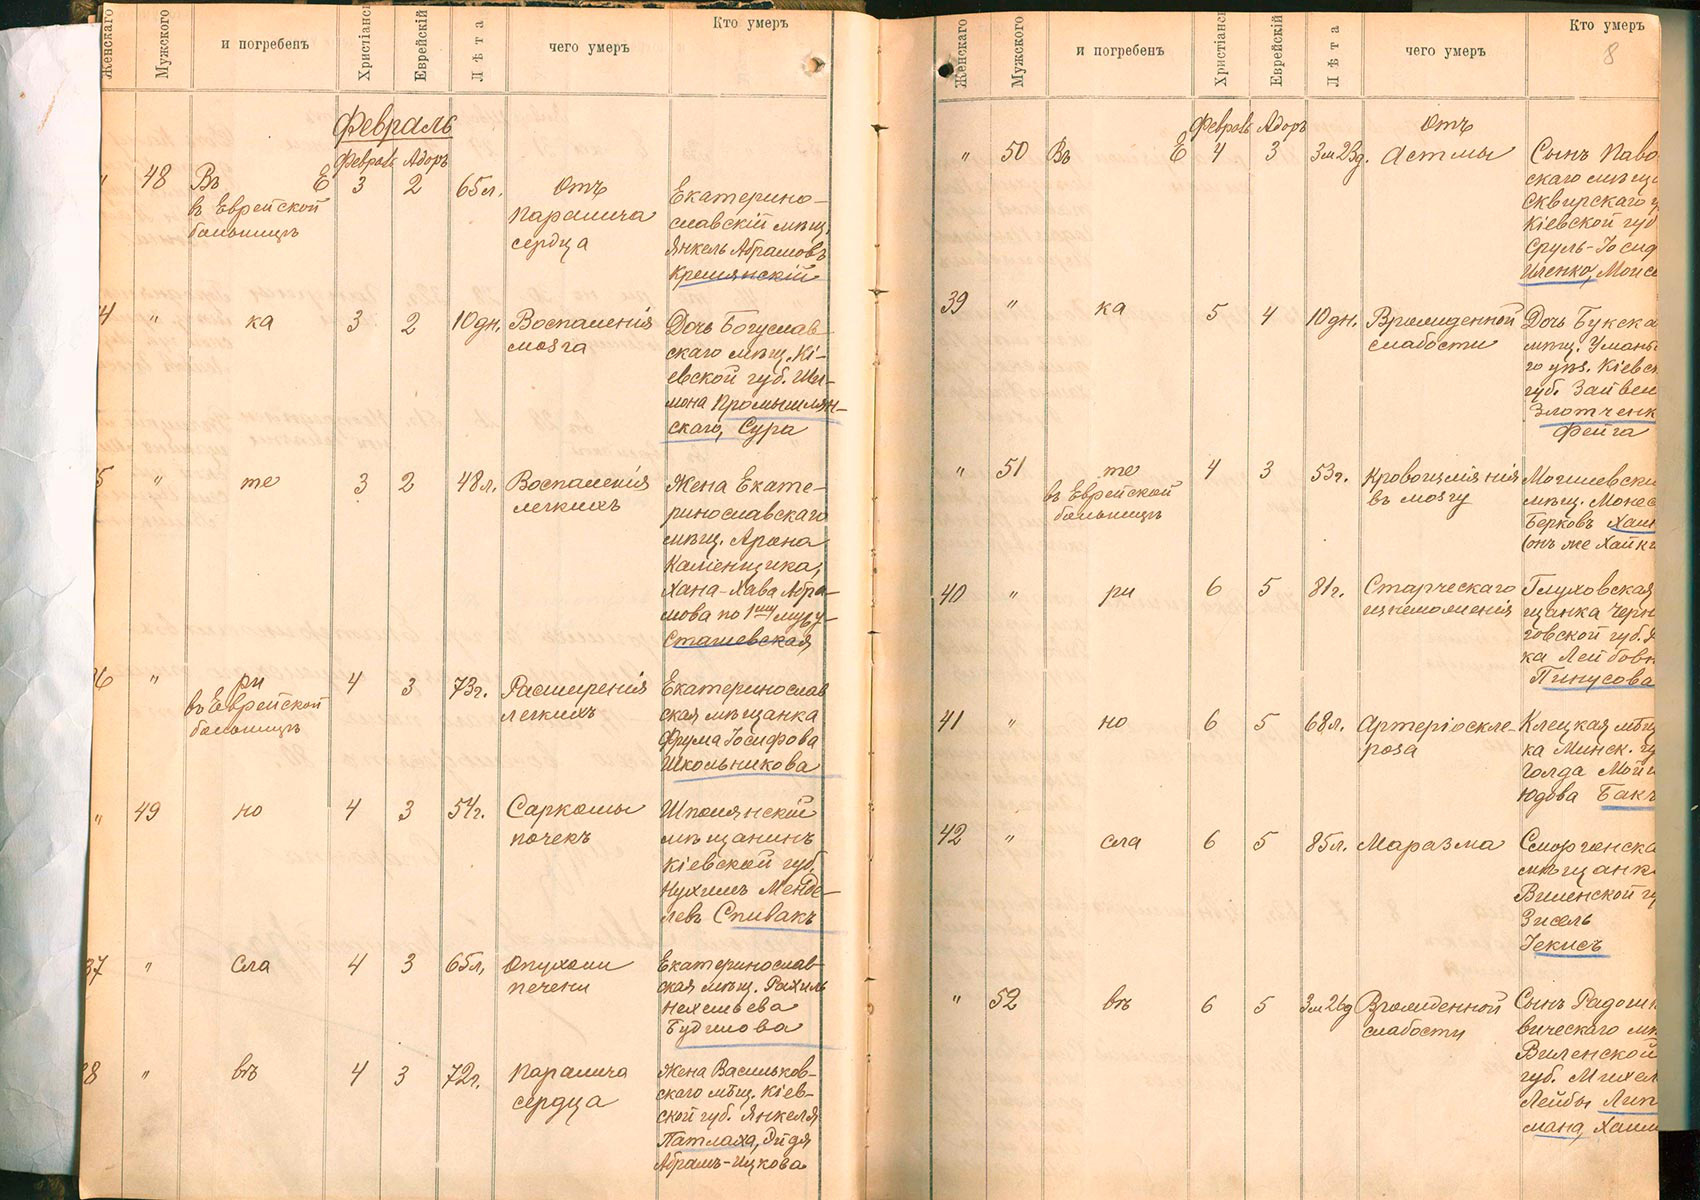 Женскаго
Мужского
и погребенъ
Христіанс
Еврейскій
Лѣта
чего умеръ
Кто умеръ
Февраль
Феврал Адоръ
48 Въ Е 3 2 65л. Отъ
в Еврейской
больницѣ
паралича
сердца
Екатерино-
славскій мѣщ.
Янкель Абрамовъ
Кремянскій
4 " ка 3 2 10дн. Воспаленія
мозга
Дочь Богуслав-
скаго мѣщ. Кі-
евской губ. Ши-
мона Промышлян-
скаго, Сура
5 " те 3 2 48л. Воспаленія
легкихъ
Жена Екате-
ринославскаго
мѣщ. Арона
Каменщика,
Хана-Хава Абра-
мова по 1му мужу
Сташевская
36 " ри 4 3 73г. Расширенія
въ Еврейской
больницѣ
легкихъ
Екатеринослав
ская мѣщанка
Фрума Іосифова
Школьникова
" 49 но 4 3 54г. Саркомы
почекъ
Шполянскій
мѣщанинъ
Кіевской губ.
Нухимъ Менде-
левъ Спивакъ
37 " сла 4 3 65л. Опухоли
печени
Екатеринослав-
ская мѣщ. Рахиль
Нехемьева
Будилова
38 " въ 4 3 72г. Паралича
сердца
Жена Васильков-
скаго мѣщ. Кіев-
ской губ. Янкеля
Патлаха, Эйдя
Абрамъ-Ицкова
Женскаго
Мужского
и погребенъ
Христіанс
Еврейскій
Лѣта
чего умеръ
Кто умеръ
8
Феврал Адоръ Отъ
" 50 Въ Е 4 3 3м23д. Астмы
Сынъ Паво
скаго мѣщ
Сквирскаго у
Кіевской губ
Сруль-Іосиф
Иленко, Мойс
39 " ка 5 4 10дн. Врожденной
слабости
Дочь Букска
мѣщ. Уманьс
го уѣз. Кіевск
губ. Зайвел
Злотченк
Фейга
" 51 те 4 3 53г. Кровоизліянія
въ Еврейской
больницѣ
въ мозгу
Могилевски
мѣщ.
Берковъ Хаи
(онъ же Хайки
40 " ри 6 5 81г. Старческаго
изнеможенія
Глуховская
щанка Черн
говской губ.
ка Лейбовн
Пинусова
41 " но 6 5 68л. Артеріоскле-
роза
Клецкая мѣщ
ка Минск. гу
Голда Мой
Юдова Бакъ
42 " сла 6 5 85л. Маразма
Сморгонска
мѣщанк
Виленской гу
Зисель
Іекисъ
" 52 въ 6 5 3м26д Врожденной
слабости
Сынъ Радошк
вическаго мѣ
Виленской
губ. Михел
Лейбы Лип
мана, Хаим